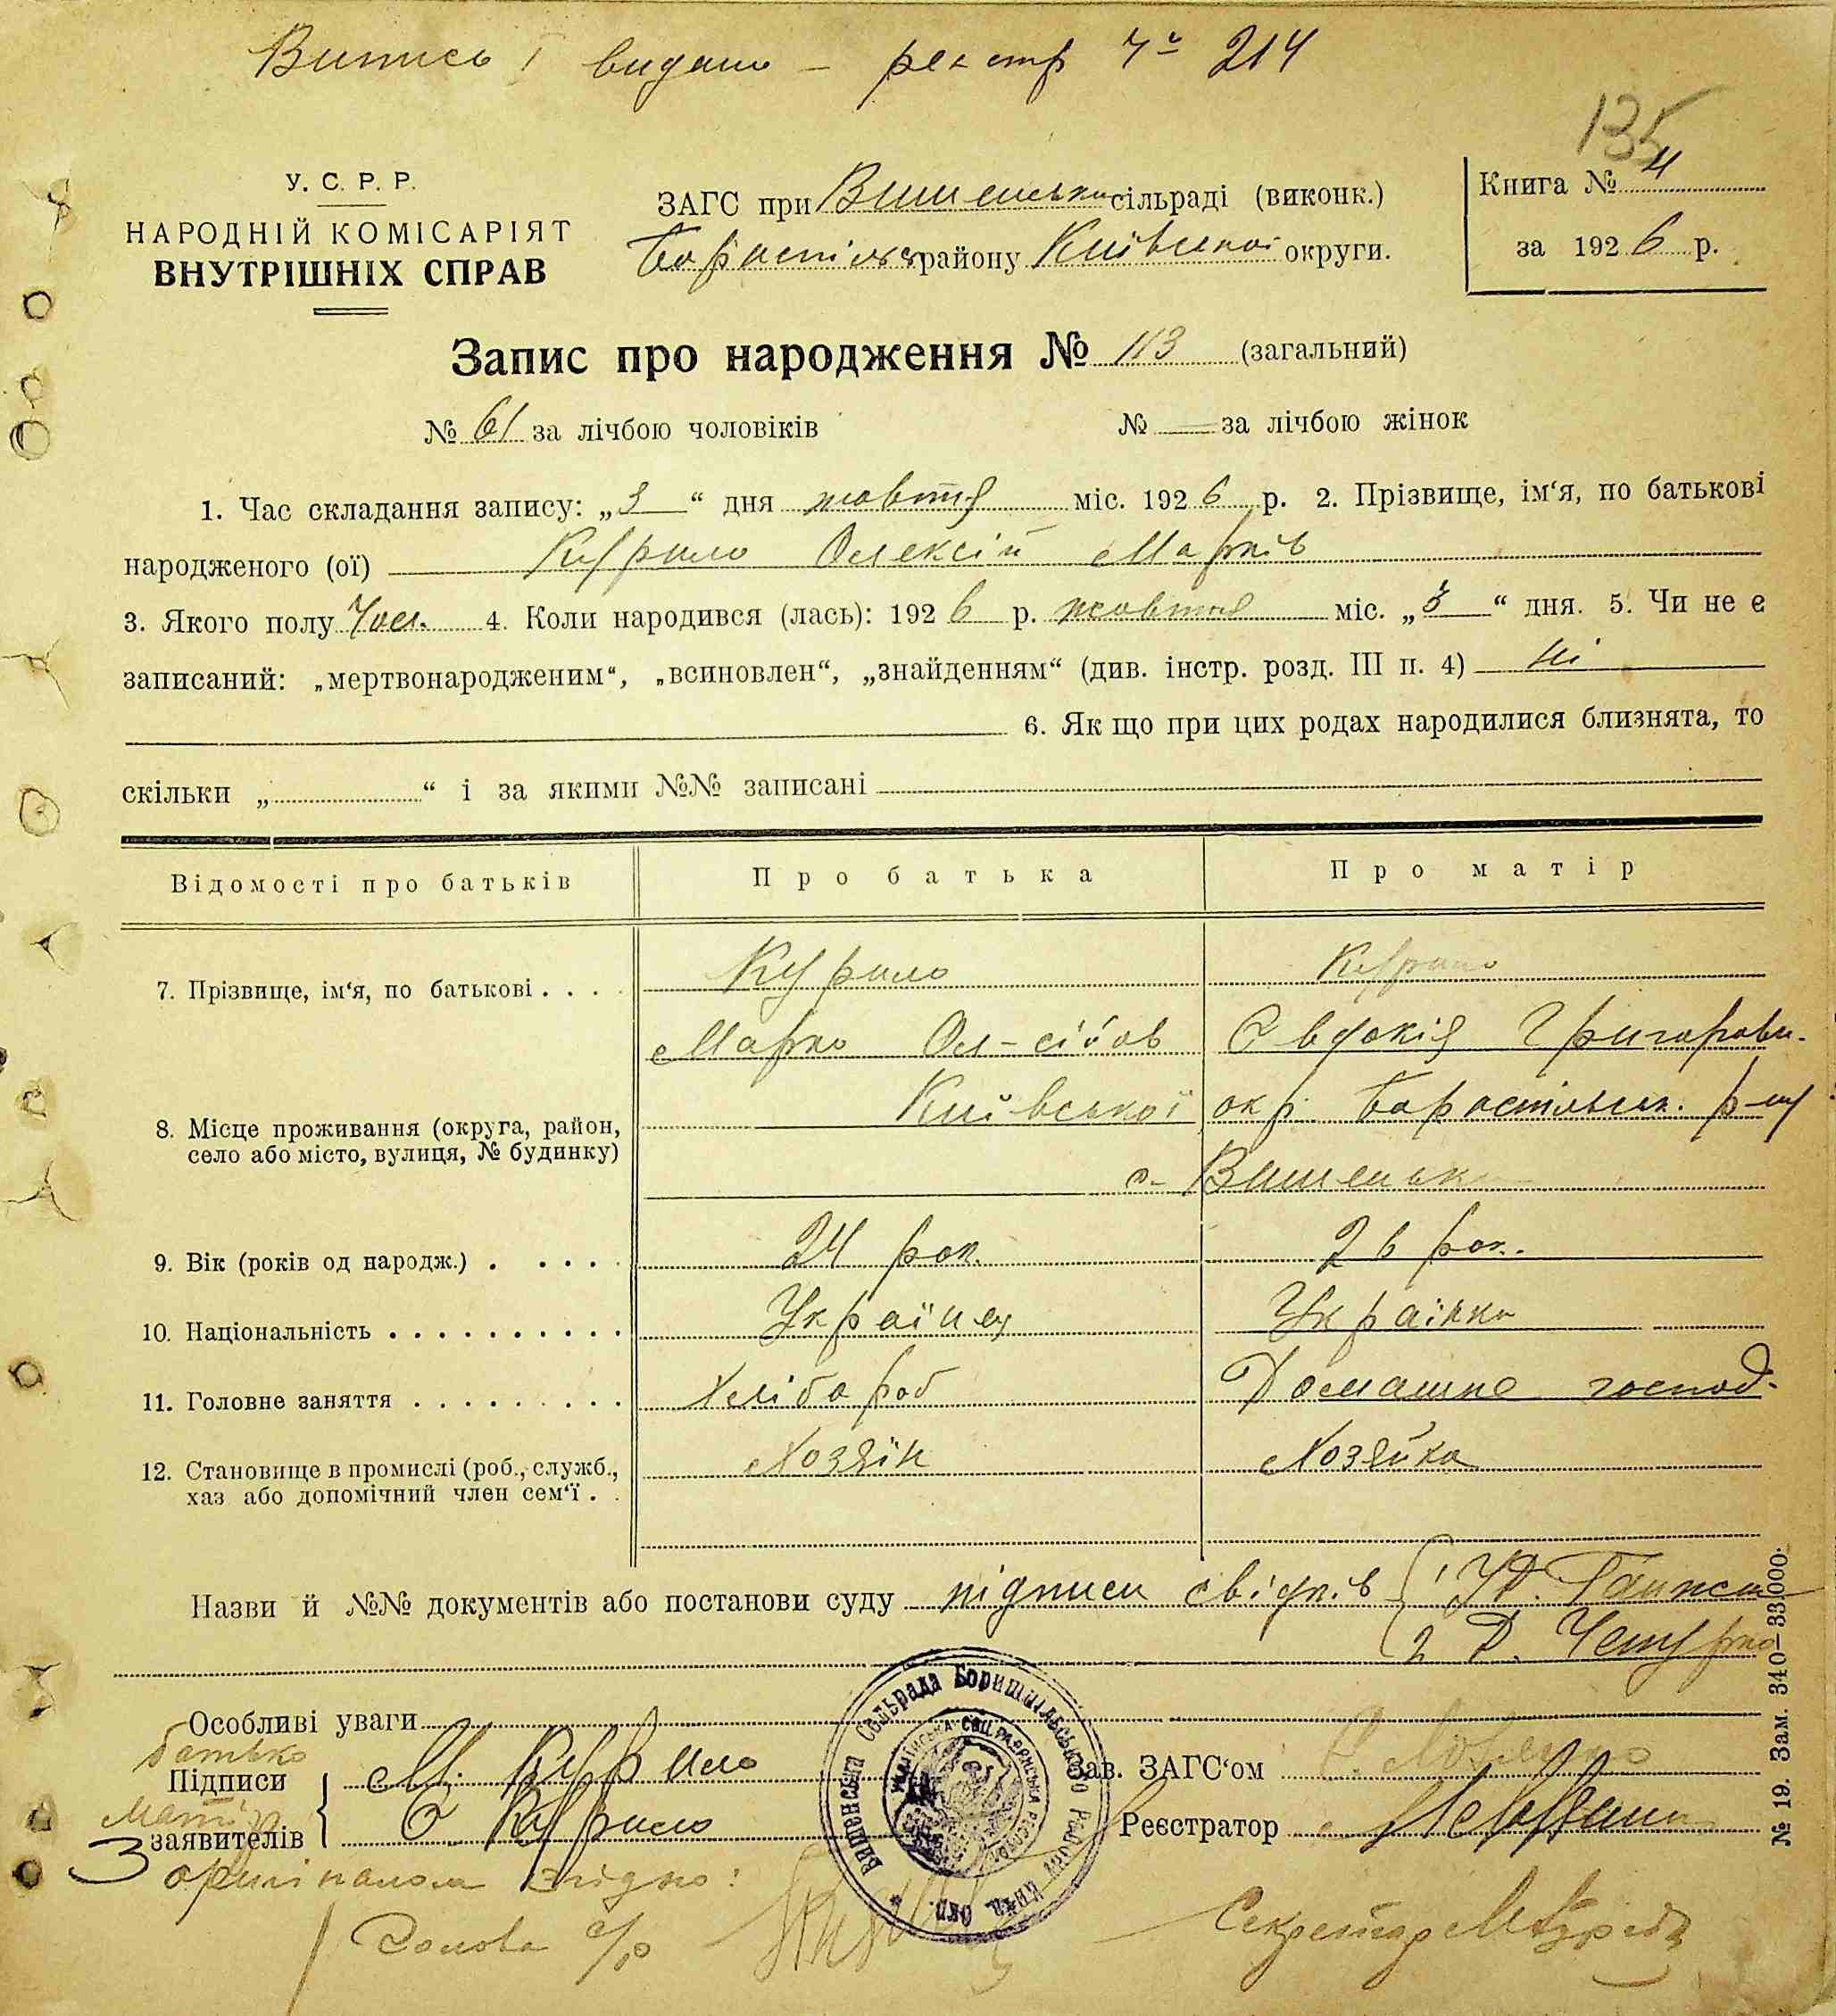 Випись видано - реєстр № 214
135
У. С. Р. Р.
НАРОДНІЙ КОМІСАРІЯТ
ВНУТРІШНІХ СПРАВ
ЗАГС при Вишенськи сільраді (виконк.)
району Київської округи.
Книга № 4
за 1926 р.
Запис про народження № 113 (загальний)
№ 61 за лічбою чоловіків № — за лічбою жінок
1. Час складання запису: „3“ дня жовтня міс. 1926 р. 2. Прізвище, ім‘я, по батькові
народженого (ої) Курило Олексій Марків
3. Якого полу Чол. 4. Коли народився (лась): 1926 р. жовтня міс. „3“ дня. 5. Чи не є
записаний: „мертвонародженим“, „всиновлен“, „знайденням“ (див. інстр. розд. III п. 4) ні
6. Як що при цих родах народилися близнята, то
скільки „ “ і за якими №№ записані
Відомості про батьків Про батька Про матір
7. Прізвище, ім‘я, по батькові . . . . Курило Курило
Марко Ол-сійов Євдокія Григоров.
8. Місце проживання (округа, район, Київської окр. р-ну
село або місто, вулиця, № будинку) с. Вишеньк
9. Вік (років од народж.) . . . . . 24 рок. 26 рок.
10. Національність . . . . . . . . . . Українец Українка
11. Головне заняття . . . . . . . . . Хлібороб Домашнє господ.
12. Становище в промислі (роб., служб., Хозяїн Хозяйка
хаз або допомічний член сем‘ї . .
Назви й №№ документів або постанови суду підписи свідків 1
2 Д.
Особливі уваги
батько
Підписи М. Курило Зав. ЗАГС‘ом
матір
заявителів Є. Курило Реєстратор
З оригіналом згідно:
Голова с/р Секретар
Вишенська Сільрада Бориспільського Району Київ. окр.
№ 19. Зам. 340–33.000.